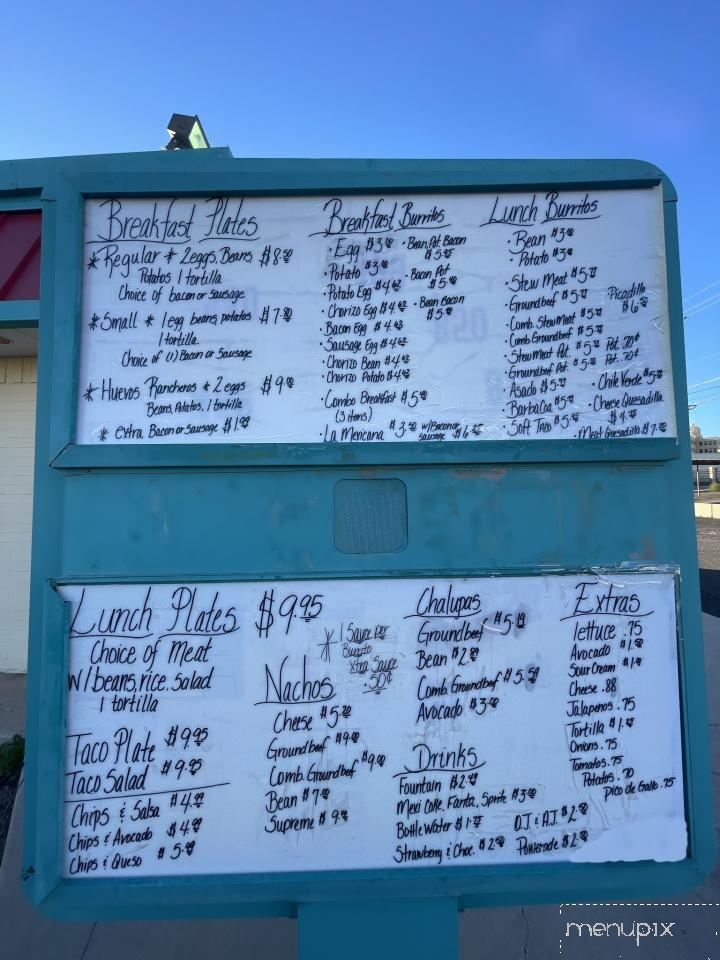 Breakfast Plates
* Regular * 2eggs, Beans, $8
Potatos 1 tortilla
Choice of bacon or sausage
* Small * 1 egg beans, potatos $7
1 tortilla
Choice of (1) Bacon or Sausage
* Huevos Rancheros * 2 eggs $9
Beans, Potatos, 1 tortilla
* extra Bacon or Sausage $1
Breakfast Burritos
· Egg $3
· Potato $3
· Potato Egg $4
· Chorizo Egg $4
· Bacon Egg $4
· Sausage Egg $4
· Chorizo Bean $4
· Chorizo Potato $4
· Combo Breakfast $5
(3 items)
· La Mexicana $3 w/Bacon or Sausage $6
· Bean, Pot, Bacon $5
· Bacon Pot $5
· Bean Bacon $5
Lunch Burritos
· Bean $3
· Potato $3
· Stew Meat $5
· Groundbeef $5
· Comb. Stew Meat $5
· Comb Groundbeef $5
· Stew Meat Pot. $5
· Groundbeef Pot. $5
· Asado $5
· Barbacoa $5
· Soft Taco $5
Picadillo $6
· Chile Verde $5
· Cheese Quesadilla $4
· Meat Quesadilla $7
Lunch Plates $9.95
Choice of Meat
W/beans, rice, Salad
1 tortilla
Taco Plate $9.95
Taco Salad $9.95
Chips & Salsa $4
Chips & Avocado $4
Chips & Queso $5
* 1 Sauce per
Burrito
Xtra Sauce
.50¢
Nachos
Cheese $5
Groundbeef $9
Comb. Groundbeef $9
Bean $7
Supreme $9
Chalupas
Groundbeef $5
Bean $2
Comb. Groundbeef $5
Avocado $3
Drinks
Fountain $2
Mexi Coke, Fanta, Sprite $3
Bottle Water $1
O.J. & A.J. $2
Strawberry & Choc. $2
Powerade $2
Extras
lettuce .75
Avocado $1
Sour Cream $1
Cheese .88
Jalapenos .75
Tortilla $1
Onions .75
Tomatos .75
Potatos .70
Pico de Gallo .75
menupix